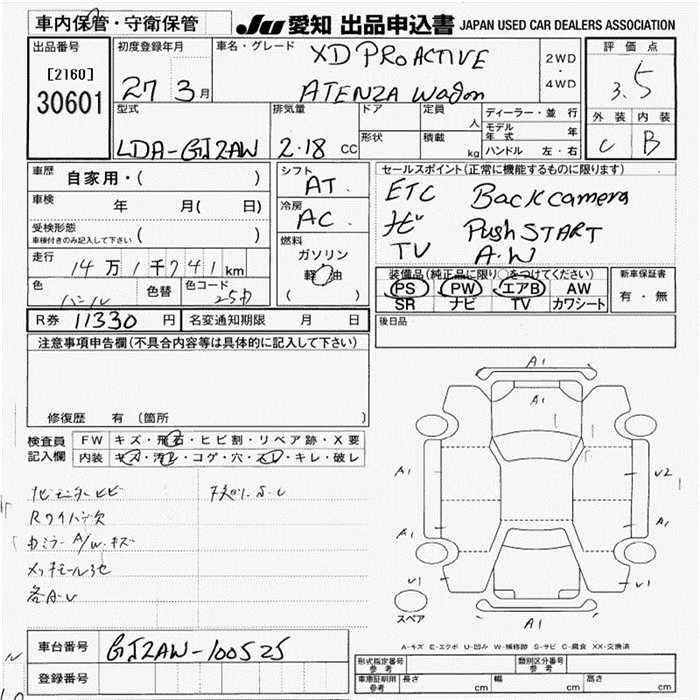 車内保管・守衛保管
JU 愛知 出品申込書 JAPAN USED CAR DEALERS ASSOCIATION
出品番号
[2160]
30601
初度登録年月
27 3月
車名・グレード
XD PROACTIVE
ATENZA Wagon
2WD
・
4WD
評価点
3.5
外装 内装
C B
型式
LDA-GJ2AW
排気量
2.18 CC
ドア
形状
定員
人
積載
kg
ディーラー・並行
モデル年式 年
ハンドル 左・右
車歴
自家用・( )
車検
年 月( 日)
受検形態
車検付きのみ記入して下さい ( )
走行
14万1千741km
色
色替
色コード
25D
シフト
AT
冷房
AC
燃料
ガソリン
軽油
( )
セールスポイント(正常に機能するものに限ります)
ETC Back camera
ナビ Push START
TV A.W
装備品(純正品に限り○をつけてください)
PS PW エアB AW
SR ナビ TV カワシート
新車保証書
有・無
後日品
R券 11330 円
名変通知期限 月 日
注意事項申告欄(不具合内容等は具体的に記入して下さい)
修復歴 有 (箇所 )
検査員
記入欄
FW キズ・飛石・ヒビ割・リペア跡・X要
内装 キズ・汚れ・コゲ・穴・スレ・キレ・破レ
Rワイパー欠
カミラー A/W.キズ
各A-U
A1
A1
A1
A1
U2
A1
U1
U1
A1
スペア
A-キズ E-エクボ U-凹み W-補修跡 S-サビ C-腐食 XX-交換済
車台番号
GJ2AW-100525
登録番号
形式指定番号
参考
類別区分番号
参考
車庫証明用
参考
長さ cm
幅 cm
高さ cm